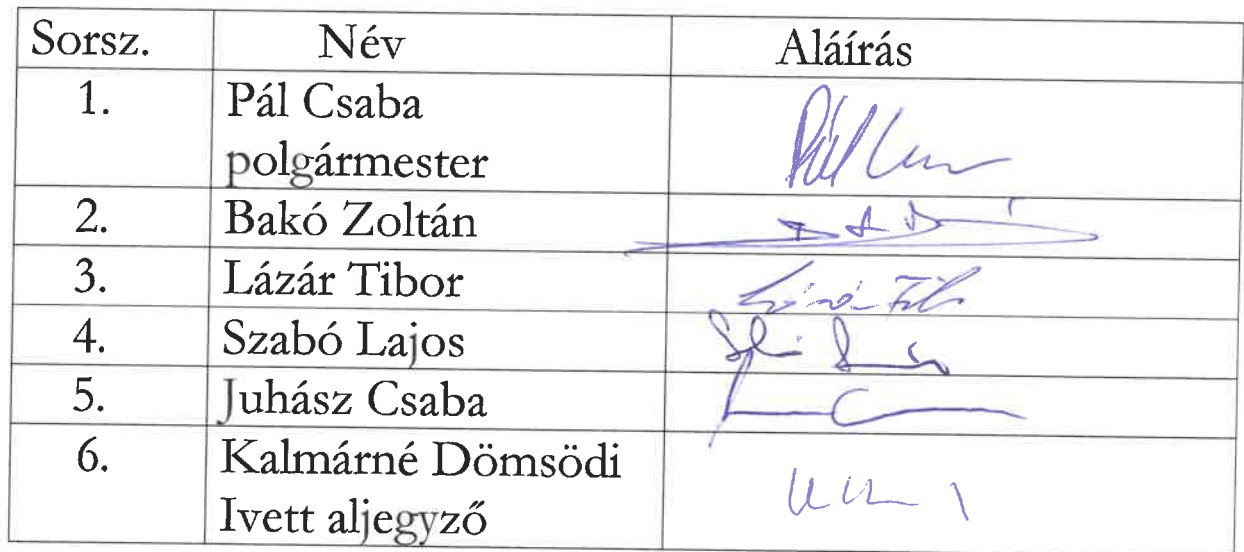 Sorsz. Név Aláírás
1. Pál Csaba
polgármester
2. Bakó Zoltán
3. Lázár Tibor
4. Szabó Lajos
5. Juhász Csaba
6. Kalmárné Dömsödi
Ivett aljegyző